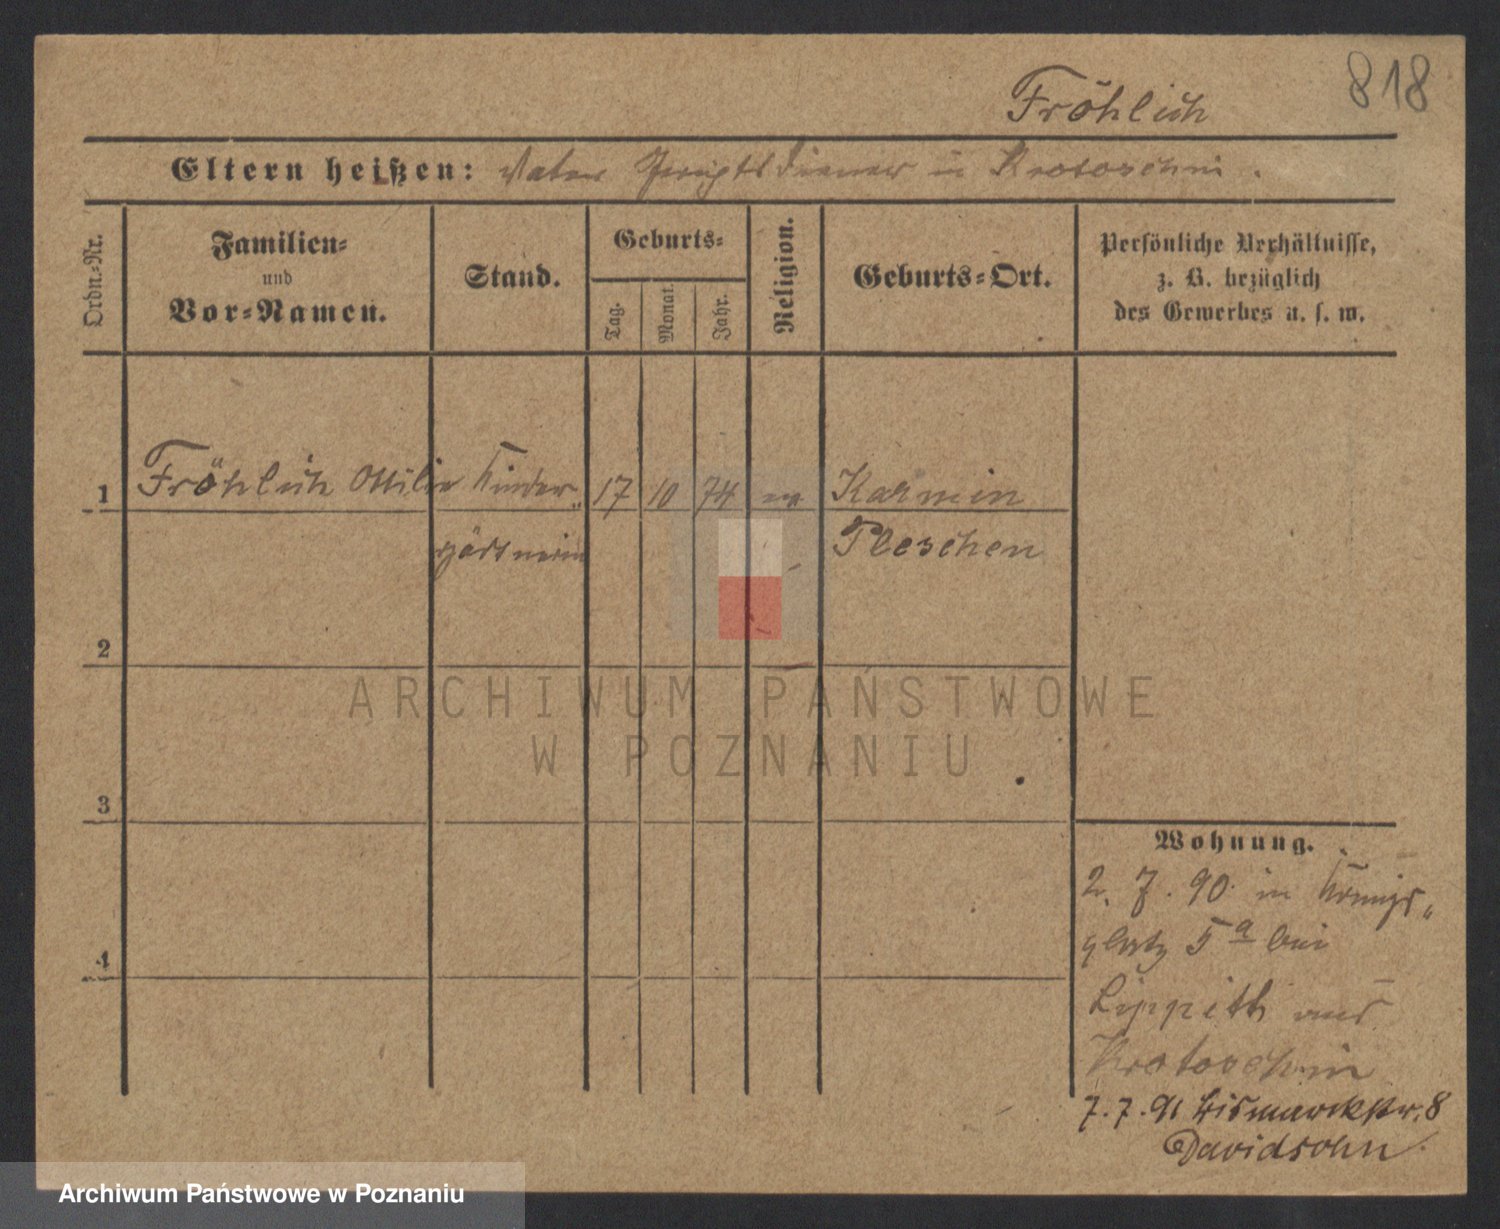 818
Fröhlich
Eltern heißen: Vater Gerichtsdiener in Krotoschin.
Ordn.-Nr.
Familien-
und
Vor-Namen.
Stand.
Geburts-
Tag.
Monat.
Jahr.
Religion.
Geburts-Ort.
Persönliche Verhältnisse,
z. B. bezüglich
des Gewerbes u. s. w.
1 Fröhlich Ottilie Kinder- 17 10 74 Karmin
gärtnerin Pleschen
2
3
4
Wohnung.
2. 7. 90 in Königs-
platz 5a bei
Lippith aus
Krotoschin
7. 7. 91 Bismarckstr. 8
Davidsohn
ARCHIWUM PAŃSTWOWE
W POZNANIU
Archiwum Państwowe w Poznaniu